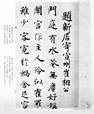 題新居寄宣州崔相公
門庭有水巷無塵好稱
閒官作主人冷似雀羅
雖少客寬於蝸舍足容